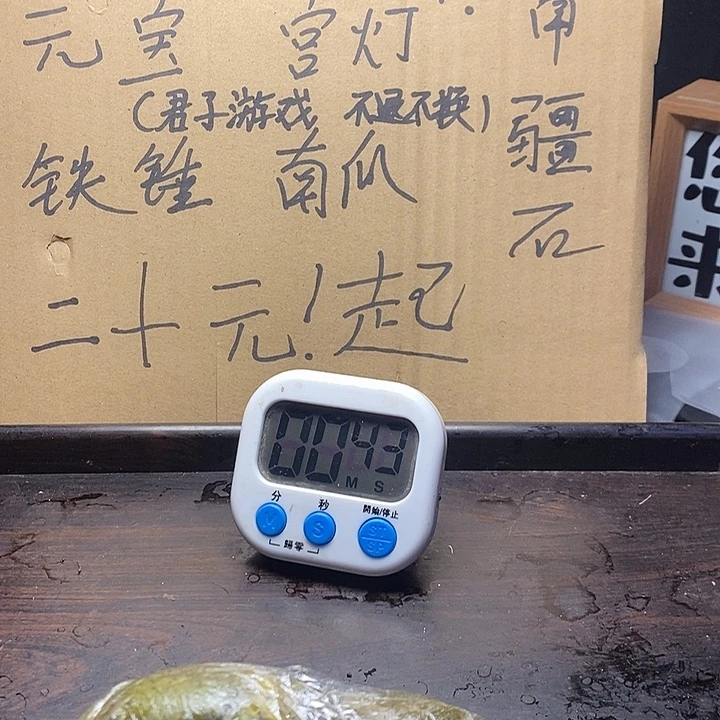 元宝 宫灯
(君子游戏 不退不换)
铁锤 南瓜
二十元!起
南
疆
石
您
来
00 43
M S
分 秒 開始/停止
M S ST/SP
歸零